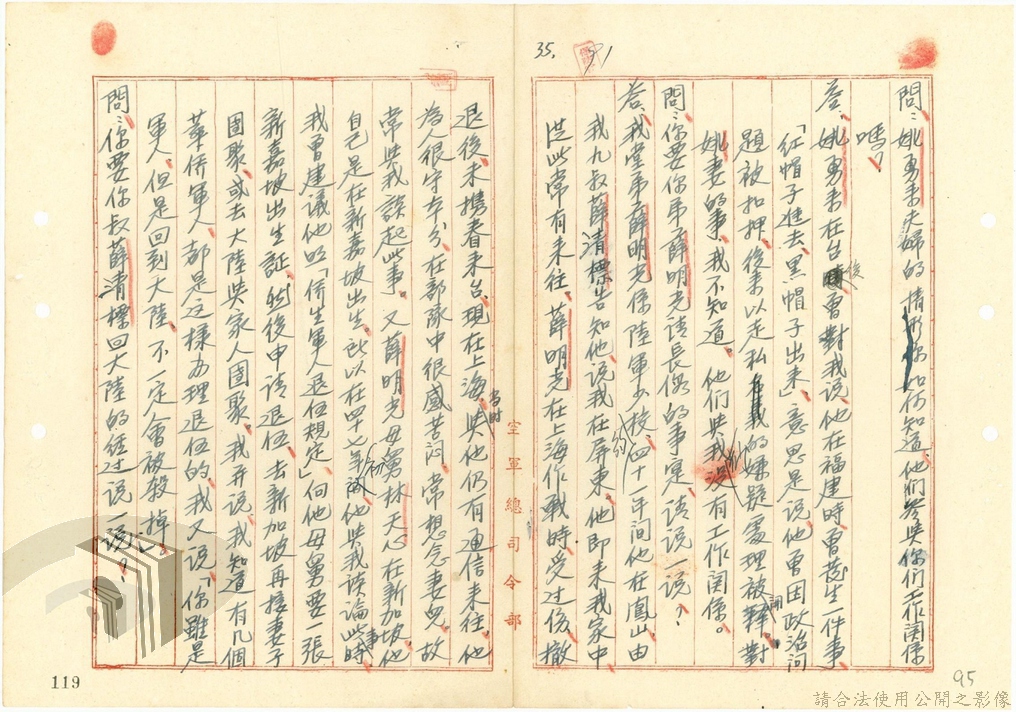 35.
問：姚勇來夫婦的情形你如何知道，他們答與你們工作關係
嗎？
答：姚勇來在台後曾對我說，他在福建時曾發生一件事
「紅帽子進去，黑帽子出來」意思是說他曾因政治問
題被扣押，後來以走私的嫌疑處理被釋，對
姚妻的事，我不知道。他們與我沒有工作關係。
問：你要你弟薛明光請長假的事實，請說一說？
答：我堂弟薛明光係陸軍少校，四十一年間他在鳳山，由
我九叔薛清標告知他，說我在屏東，他即來我家中
從此常有來往。薛明光在上海作戰時受过伤，撤
空軍總司令部
退後，未攜眷來台，現在上海，當时與他仍有通信來往。他
為人很守本分，在部隊中很感苦闷，常想念妻兒，故
常與我談起此事。又薛明光母舅林天心在新加坡，他
自己是在新嘉坡出生，所以在四十七年初他與我談論此事時
我曾建議他以「僑生軍人退伍規定」向他母舅要一張
新嘉坡出生証，然後申請退伍，去新加坡再接妻子
團聚，或去大陸與家人團聚。我并説，我知道有几個
華僑軍人，都是這樣办理退伍的，我又說「你雖是
軍人，但是回到大陸，不一定會被殺掉」。
問：你要你叔薛清標回大陸的经过說一說？
119
95
請合法使用公開之影像